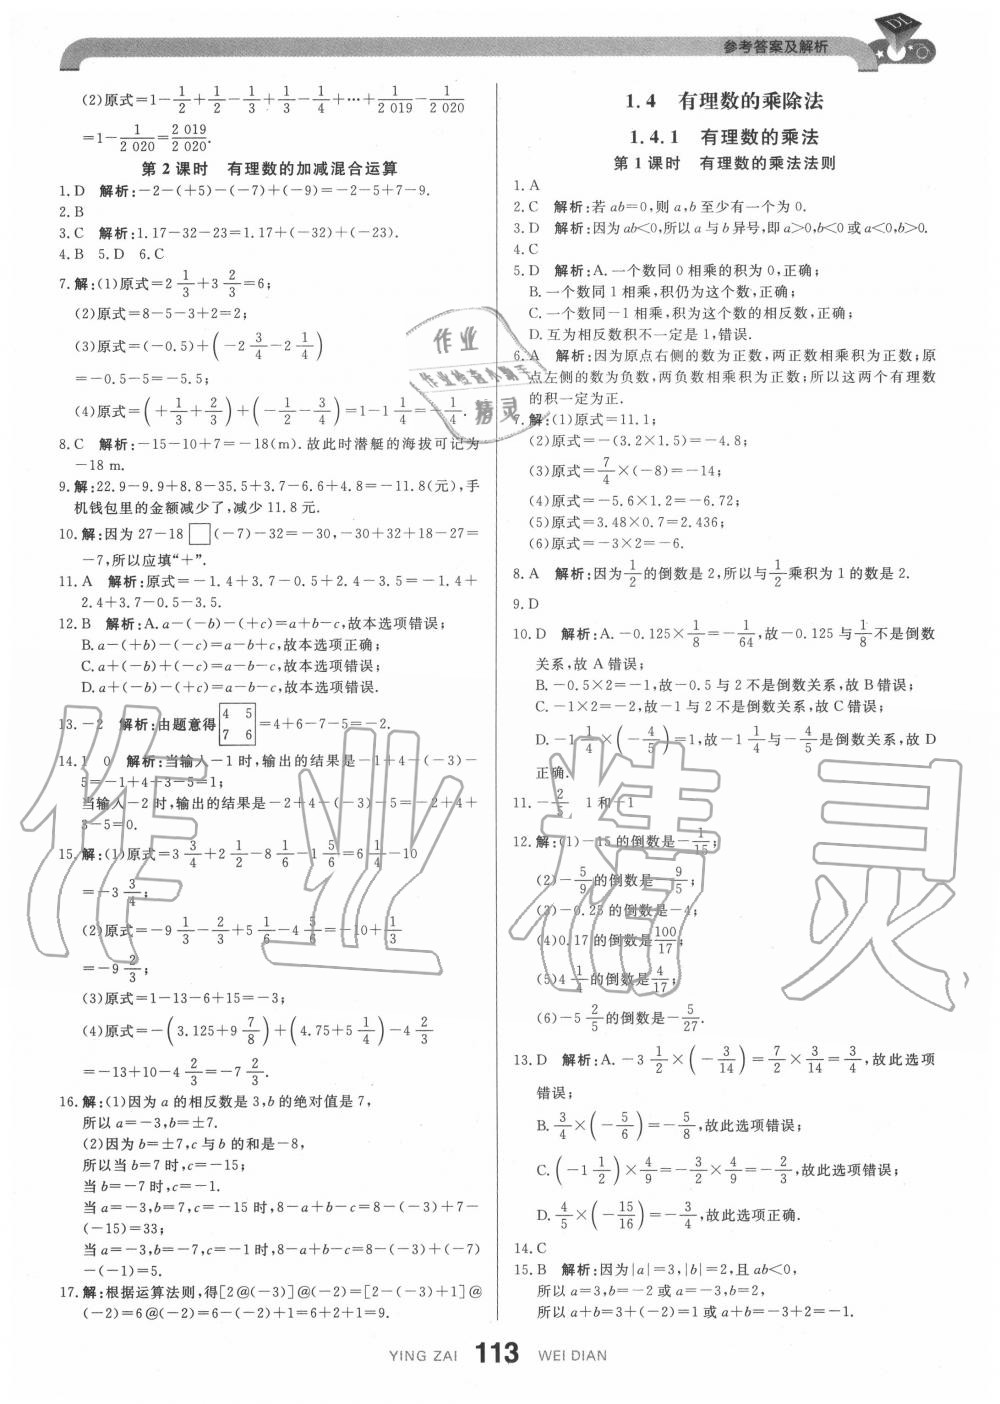 参考答案及解析
(2)原式=1-1/2+1/2-1/3+1/3-1/4+…+1/2 019-1/2 020
=1-1/2 020=2 019/2 020.
第2课时 有理数的加减混合运算
1.D 解析:-2-(+5)-(-7)+(-9)=-2-5+7-9.
2.B
3.C 解析:1.17-32-23=1.17+(-32)+(-23).
4.B 5.D 6.C
7.解:(1)原式=2 1/3+3 2/3=6;
(2)原式=8-5-3+2=2;
(3)原式=(-0.5)+(-2 3/4-2 1/4)
=-0.5-5=-5.5;
(4)原式=(+1/3+2/3)+(-1/2-3/4)=1-1 1/4=-1/4.
8.C 解析:-15-10+7=-18(m).故此时潜艇的海拔可记为
-18 m.
9.解:22.9-9.9+8.8-35.5+3.7-6.6+4.8=-11.8(元),手
机钱包里的金额减少了,减少11.8元.
10.解:因为27-18□(-7)-32=-30,-30+32+18-27=
-7,所以应填“+”.
11.A 解析:原式=-1.4+3.7-0.5+2.4-3.5=-1.4+
2.4+3.7-0.5-3.5.
12.B 解析:A.a-(-b)-(+c)=a+b-c,故本选项错误;
B.a-(+b)-(-c)=a-b+c,故本选项正确;
C.a+(-b)-(+c)=a-b-c,故本选项错误;
D.a+(-b)-(+c)=a-b-c,故本选项错误.
13.-2 解析:由题意得 4 5 7 6 =4+6-7-5=-2.
14.1 0 解析:当输入-1时,输出的结果是-1+4-(-3)-
5=-1+4+3-5=1;
当输入-2时,输出的结果是-2+4-(-3)-5=-2+4+
3-5=0.
15.解:(1)原式=3 3/4+2 1/2-8 1/6-1 5/6=6 1/4-10
=-3 3/4;
(2)原式=-9 1/3-2/3+5 1/6-4 5/6=-10+1/3
=-9 2/3;
(3)原式=1-13-6+15=-3;
(4)原式=-(3.125+9 7/8)+(4.75+5 1/4)-4 2/3
=-13+10-4 2/3=-7 2/3.
16.解:(1)因为a的相反数是3,b的绝对值是7,
所以a=-3,b=±7.
(2)因为b=±7,c与b的和是-8,
所以当b=7时,c=-15;
当b=-7时,c=-1.
当a=-3,b=7,c=-15时,8-a+b-c=8-(-3)+7-
(-15)=33;
当a=-3,b=-7,c=-1时,8-a+b-c=8-(-3)+(-7)
-(-1)=5.
17.解:根据运算法则,得[2@(-3)]@(-2)=[2-(-3)+1]@
(-2)=6@(-2)=6-(-2)+1=6+2+1=9.
1.4 有理数的乘除法
1.4.1 有理数的乘法
第1课时 有理数的乘法法则
1.A
2.C 解析:若ab=0,则a,b至少有一个为0.
3.D 解析:因为ab<0,所以a与b异号,即a>0,b<0或a<0,b>0.
4.C
5.D 解析:A.一个数同0相乘的积为0,正确;
B.一个数同1相乘,积仍为这个数,正确;
C.一个数同-1相乘,积为这个数的相反数,正确;
D.互为相反数积不一定是1,错误.
6.A 解析:因为原点右侧的数为正数,两正数相乘积为正数;原
点左侧的数为负数,两负数相乘积为正数;所以这两个有理数
的积一定为正.
7.解:(1)原式=11.1;
(2)原式=-(3.2×1.5)=-4.8;
(3)原式=7/4×(-8)=-14;
(4)原式=-5.6×1.2=-6.72;
(5)原式=3.48×0.7=2.436;
(6)原式=-3×2=-6.
8.A 解析:因为1/2的倒数是2,所以与1/2乘积为1的数是2.
9.D
10.D 解析:A.-0.125×1/8=-1/64,故-0.125与1/8不是倒数
关系,故A错误;
B.-0.5×2=-1,故-0.5与2不是倒数关系,故B错误;
C.-1×2=-2,故-1与2不是倒数关系,故C错误;
D.-1 1/4×(-4/5)=1,故-1 1/4与-4/5是倒数关系,故D
正确.
11.-2/5 1和-1
12.解:(1)-15的倒数是-1/15;
(2)-5/9的倒数是-9/5;
(3)-0.25的倒数是-4;
(4)0.17的倒数是100/17;
(5)4 1/4的倒数是4/17;
(6)-5 2/5的倒数是-5/27.
13.D 解析:A.-3 1/2×(-3/14)=7/2×3/14=3/4,故此选项
错误;
B.3/4×(-5/6)=-5/8,故此选项错误;
C.(-1 1/2)×4/9=-3/2×4/9=-2/3,故此选项错误;
D.4/5×(-15/16)=-3/4,故此选项正确.
14.C
15.B 解析:因为|a|=3,|b|=2,且ab<0,
所以a=3,b=-2或a=-3,b=2,
所以a+b=3+(-2)=1或a+b=-3+2=-1.
YING ZAI 113 WEI DIAN
作业精灵